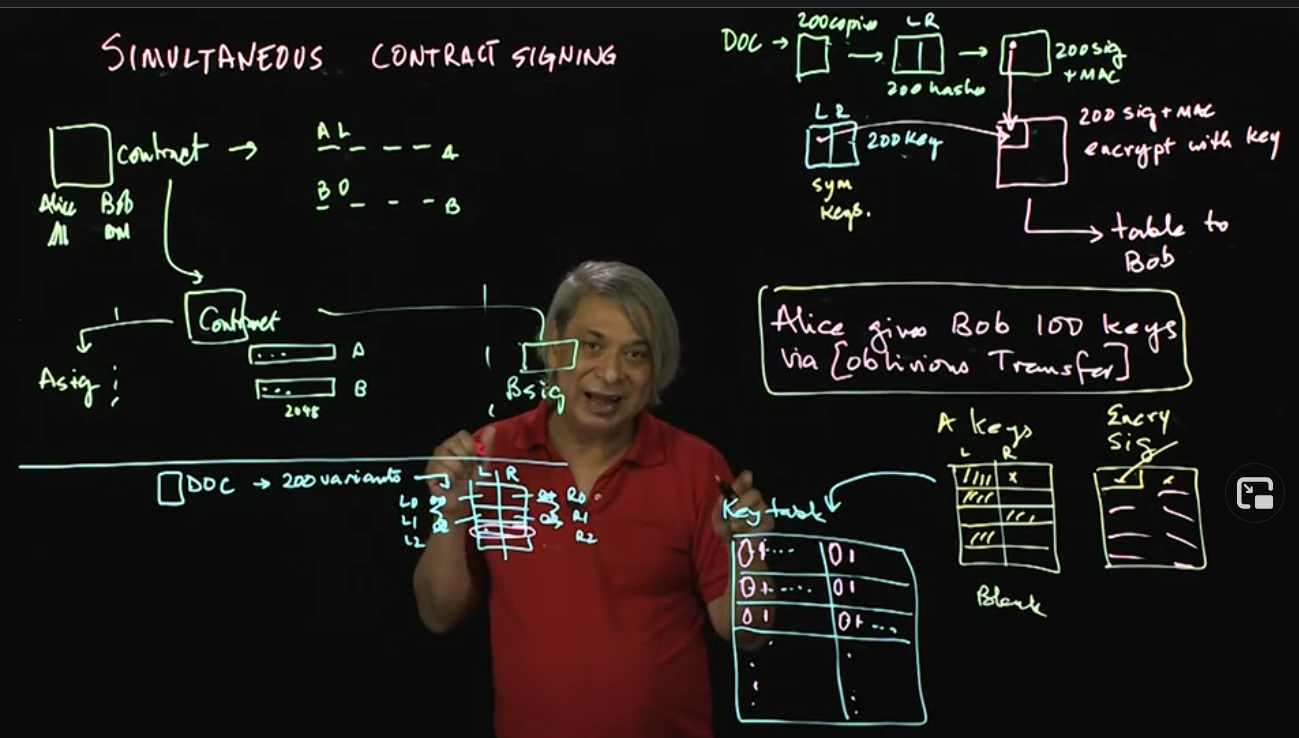 SIMULTANEOUS CONTRACT SIGNING
contract →
Alice Bob
A L
_ _ _ _ A
B O
_ _ _ _ B
Contract
A
B
2048
Asig
Bsig
DOC → 200 variants
L R
L0 R0
L1 R1
L2 R2
DOC →
200 copies
L R
200 hashes
200 sig
+ MAC
L R
200 key
sym
keys.
200 sig + MAC
encrypt with key
table to
Bob
Alice gives Bob 100 keys
via [oblivious Transfer]
A Keys
L R
x
Blank
Encry
Sig
Key table
01.... 01
01..... 01
01 01....